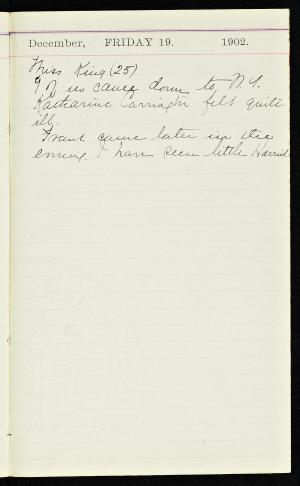 December, FRIDAY 19. 1902.
Miss King (25)
9 of us came down to N.Y.
Katharine Carrington felt quite
ill.
Frank came later in the
evening. I have seen little Harriet